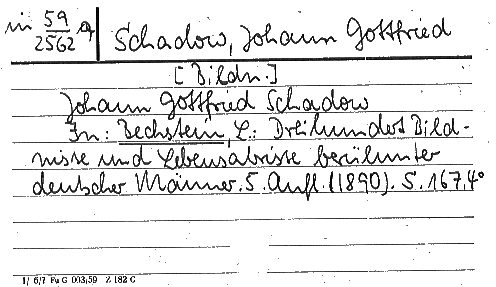 in 59/2562 a Schadow, Johann Gottfried
[Bildn.]
Johann Gottfried Schadow
In: Bechstein, L.: Dreihundert Bild-
nisse und Lebensabrisse berühmter
deutscher Männer. 5. Aufl. (1890). S. 167. 4°
1/ 6/7 Fu G 003/59 Z 182 C